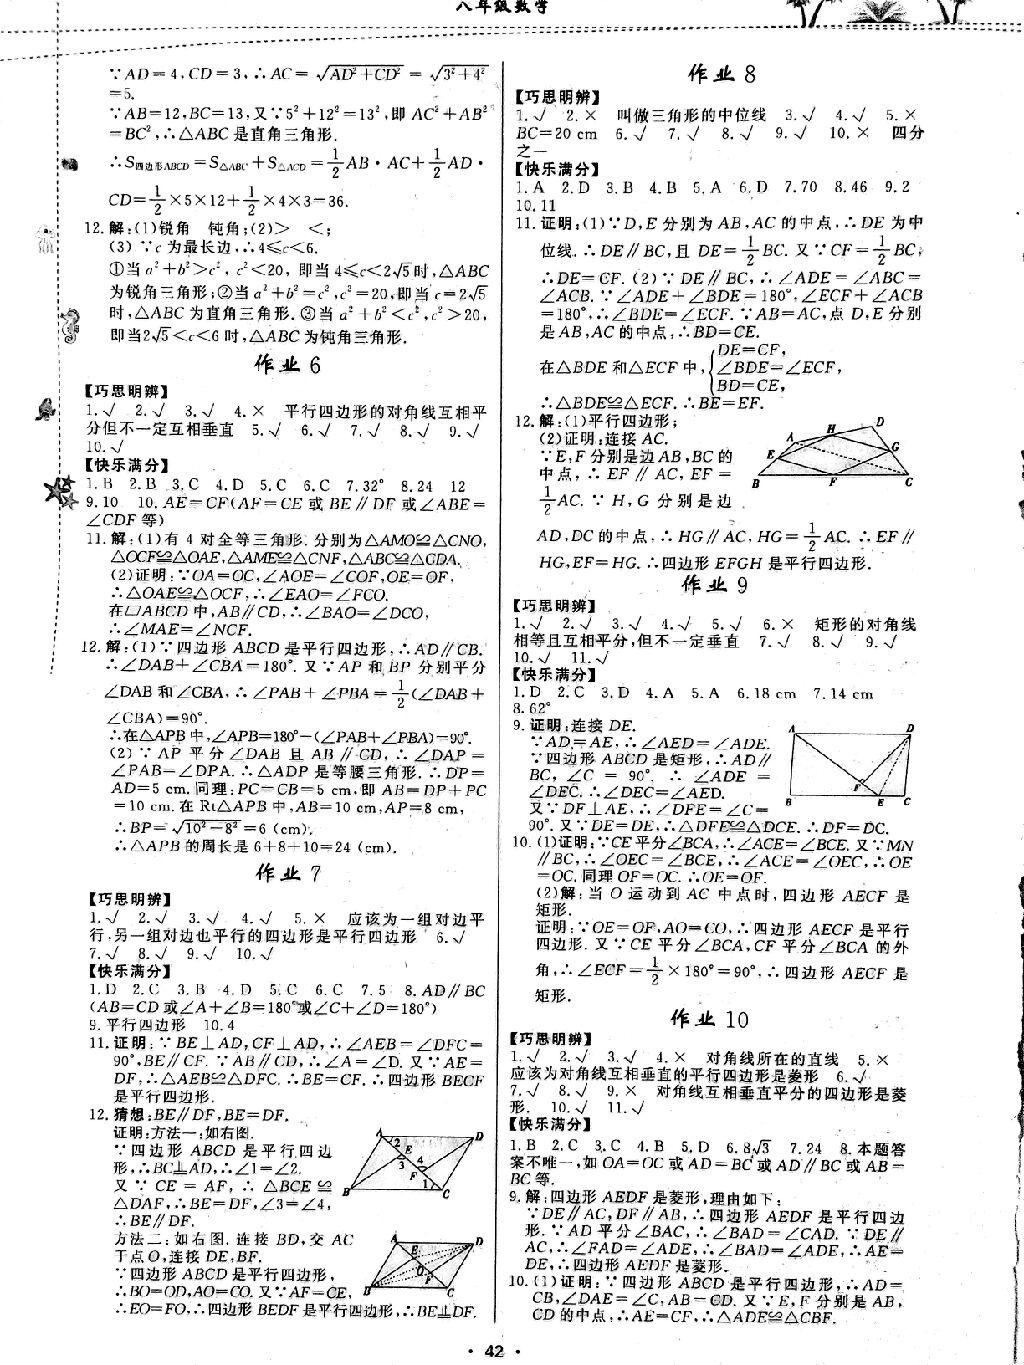 八年级数学
∵AD=4,CD=3,∴AC=√(AD²+CD²)=√(3²+4²)
=5.
∵AB=12,BC=13,又∵5²+12²=13²,即 AC²+AB²
=BC²,∴△ABC 是直角三角形.
∴S四边形ABCD=S△ABC+S△ACD=1/2AB·AC+1/2AD·
CD=1/2×5×12+1/2×4×3=36.
12.解:(1)锐角 钝角;(2)> <;
(3) ∵c 为最长边,∴4≤c<6.
①当 a²+b²>c², c²<20, 即当4≤c<2√5时,△ABC
为锐角三角形;②当 a²+b²=c²,c²=20,即当 c=2√5
时,△ABC 为直角三角形.③当 a²+b²<c²,c²>20,
即当2√5<c<6时,△ABC 为钝角三角形.
作业 6
【巧思明辨】
1.√ 2.√ 3.√ 4.× 平行四边形的对角线互相平
分但不一定互相垂直 5.√ 6.√ 7.√ 8.√ 9.√
10.√
【快乐满分】
1.B 2.B 3.C 4.D 5.C 6.C 7.32° 8.24 12
9.10 10.AE=CF(AF=CE 或 BE∥DF 或∠ABE=
∠CDF 等)
11.解:(1)有 4 对全等三角形.分别为△AMO≌△CNO,
△OCF≌△OAE,△AME≌△CNF,△ABC≌△CDA.
(2)证明:∵OA=OC,∠AOE=∠COF,OE=OF,
∴△OAE≌△OCF,∴∠EAO=∠FCO.
在▱ABCD 中,AB∥CD,∴∠BAO=∠DCO,
∴∠MAE=∠NCF.
12.解:(1)∵四边形 ABCD 是平行四边形,∴AD∥CB.
∴∠DAB+∠CBA=180°.又∵AP 和 BP 分别平分
∠DAB 和∠CBA,∴∠PAB+∠PBA=1/2(∠DAB+
∠CBA)=90°.
∴在△APB 中,∠APB=180°-(∠PAB+∠PBA)=90°.
(2)∵AP 平分∠DAB 且 AB∥CD,∴∠DAP=
∠PAB=∠DPA.∴△ADP 是等腰三角形.∴DP=
AD=5 cm.同理:PC=CB=5 cm.即 AB=DP+PC
=10 cm.在 Rt△APB 中,AB=10 cm,AP=8 cm,
∴BP=√(10²-8²)=6 (cm).
∴△APB 的周长是 6+8+10=24 (cm).
作业 7
【巧思明辨】
1.√ 2.√ 3.√ 4.√ 5.× 应该为一组对边平
行,另一组对边也平行的四边形是平行四边形 6.√
7.√ 8.√ 9.√ 10.√
【快乐满分】
1.D 2.C 3.B 4.D 5.C 6.C 7.5 8.AD∥BC
(AB=CD 或∠A+∠B=180°或∠C+∠D=180°)
9.平行四边形 10.4
11.证明:∵BE⊥AD,CF⊥AD,∴∠AEB=∠DFC=
90°,BE∥CF.∵AB∥CD,∴∠A=∠D.又∵AE=
DF,∴△AEB≌△DFC.∴BE=CF.∴四边形 BECF
是平行四边形.
12.猜想:BE∥DF,BE=DF.
证明:方法一:如右图.
∵四边形 ABCD 是平行四边
形,∴BC⊥AD,∴∠1=∠2.
又∵CE=AF,∴△BCE≌
△DAF,∴BE=DF,∠3=∠4,
∴BE∥DF.
A 2 D E 3 4 F 1 B C
方法二:如右图.连接 BD,交 AC
于点O,连接 DE,BF.
∵四边形 ABCD 是平行四边形,
∴BO=OD,AO=CO.又∵AF=CE,
∴EO=FO,∴四边形 BEDF 是平行四边形,∴BE⊥DF.
A D E O F B C
作业 8
【巧思明辨】
1.√ 2.× 叫做三角形的中位线 3.√ 4.√ 5.×
BC=20 cm 6.√ 7.√ 8.√ 9.√ 10.× 四分
之一
【快乐满分】
1.A 2.D 3.B 4.B 5.A 6.D 7.70 8.46 9.2
10.11
11.证明:(1)∵D,E 分别为 AB,AC 的中点,∴DE 为中
位线.∴DE∥BC,且 DE=1/2BC.又∵CF=1/2BC,
∴DE=CF.(2)∵DE∥BC,∴∠ADE=∠ABC=
∠ACB.∵∠ADE+∠BDE=180°,∠ECF+∠ACB
=180°,∴∠BDE=∠ECF.∵AB=AC,点 D,E 分别
是 AB,AC 的中点,∴BD=CE.
在△BDE 和△ECF 中,{DE=CF, ∠BDE=∠ECF, BD=CE,
∴△BDE≌△ECF.∴BE=EF.
12.解:(1)平行四边形;
(2)证明:连接 AC.
∵E,F 分别是边 AB,BC 的
中点,∴EF∥AC,EF=
1/2AC.∵H,G 分别是边
A H D E G B F C
AD,DC 的中点,∴HG∥AC,HG=1/2AC.∴EF∥
HG,EF=HG.∴四边形 EFGH 是平行四边形.
作业 9
【巧思明辨】
1.√ 2.√ 3.√ 4.√ 5.√ 6.× 矩形的对角线
相等且互相平分,但不一定垂直 7.√ 8.√ 9.√
10.√ 11.√
【快乐满分】
1.D 2.C 3.D 4.A 5.A 6.18 cm 7.14 cm
8.62°
9.证明:连接 DE.
∵AD=AE,∴∠AED=∠ADE.
∵四边形 ABCD 是矩形,∴AD∥
BC,∠C=90°.∴∠ADE=
∠DEC.∴∠DEC=∠AED.
又∵DF⊥AE,∴∠DFE=∠C=
90°.又∵DE=DE,∴△DFE≌△DCE.∴DF=DC.
A D F B E C
10.(1)证明:∵CE平分∠BCA,∴∠ACE=∠BCE.又∵MN
∥BC,∴∠OEC=∠BCE,∴∠ACE=∠OEC,∴OE
=OC.同理 OF=OC.∴OE=OF.
(2)解:当 O 运动到 AC 中点时,四边形 AECF 是
矩形.
证明:∵OE=OF,AO=CO,∴四边形 AECF 是平行
四边形.又∵CE 平分∠BCA,CF 平分∠BCA 的外
角,∴∠ECF=1/2×180°=90°,∴四边形 AECF 是
矩形.
作业 10
【巧思明辨】
1.√ 2.√ 3.√ 4.× 对角线所在的直线 5.×
应该为对角线互相垂直的平行四边形是菱形 6.√
7.√ 8.√ 9.× 对角线互相垂直平分的四边形是菱
形. 10.√ 11.√
【快乐满分】
1.B 2.C 3.C 4.B 5.D 6.8√3 7.24 8.本题答
案不唯一,如 OA=OC 或 AD=BC 或 AD∥BC 或 AB=
BC 等.
9.解:四边形 AEDF 是菱形,理由如下:
∵DE∥AC,DF∥AB,∴四边形 AEDF 是平行四边
形.∵AD 平分∠BAC,∴∠BAD=∠CAD.∵DE∥
AC,∴∠FAD=∠ADE,∴∠BAD=∠ADE,∴AE=
DE,∴四边形 AEDF 是菱形.
10.(1)证明:∵四边形 ABCD 是平行四边形,∴AD=
CB,∠DAE=∠C,AB=CD.又∵E,F 分别是 AB,
CD 的中点,∴AE=CF,∴△ADE≌△CBF.
· 42 ·